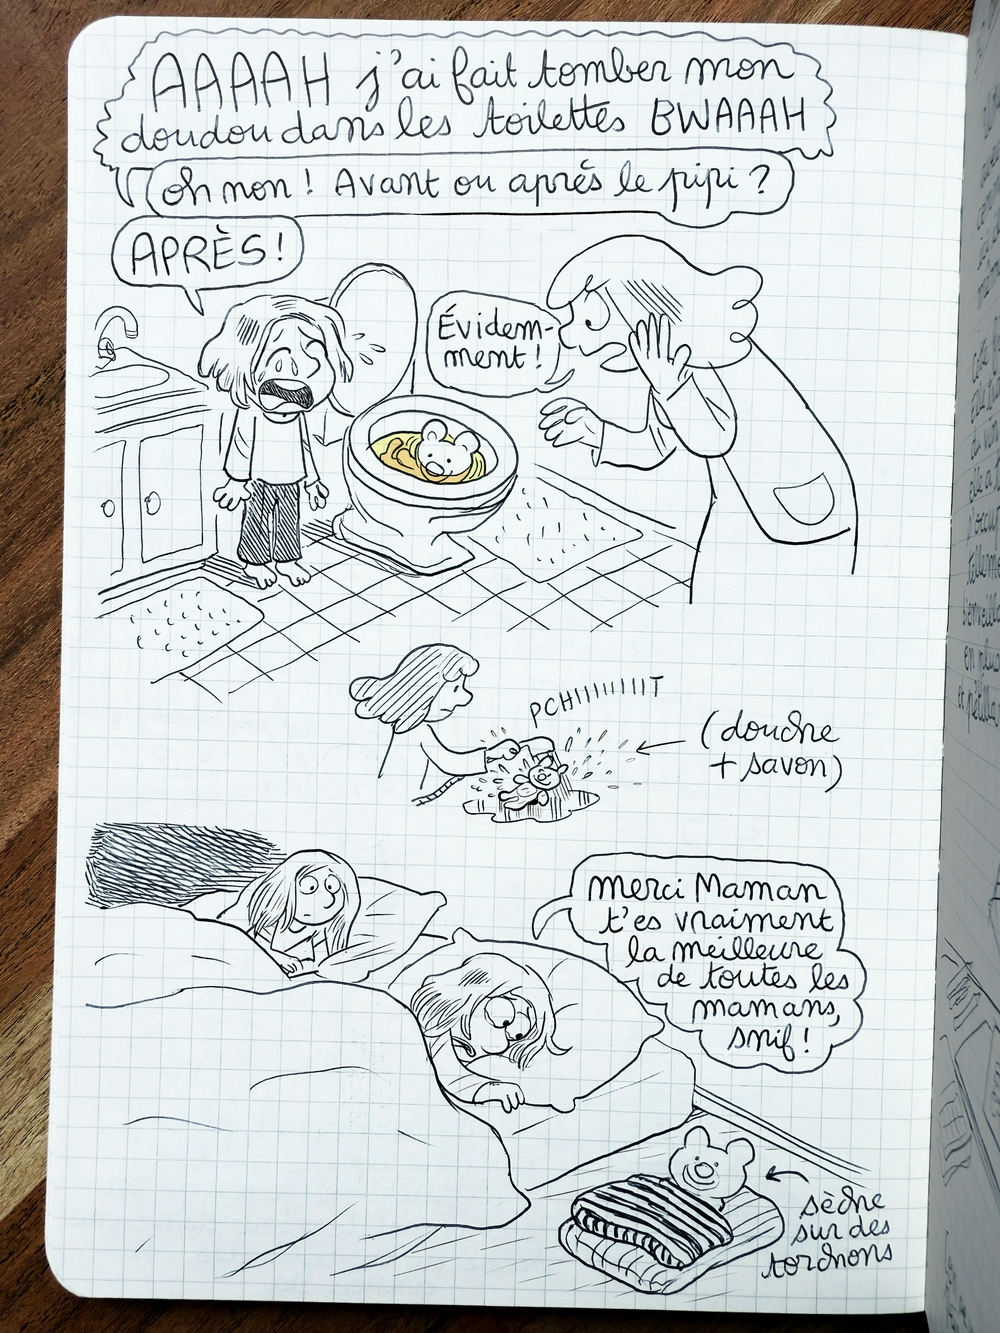 AAAAH j'ai fait tomber mon
doudou dans les toilettes BWAAAH
oh non ! Avant ou après le pipi ?
APRÈS !
Évidem-
ment !
PCHIIIIIIIIIT
(douche
+ savon)
merci Maman
t'es vraiment
la meilleure
de toutes les
mamans,
snif !
sèche
sur des
torchons